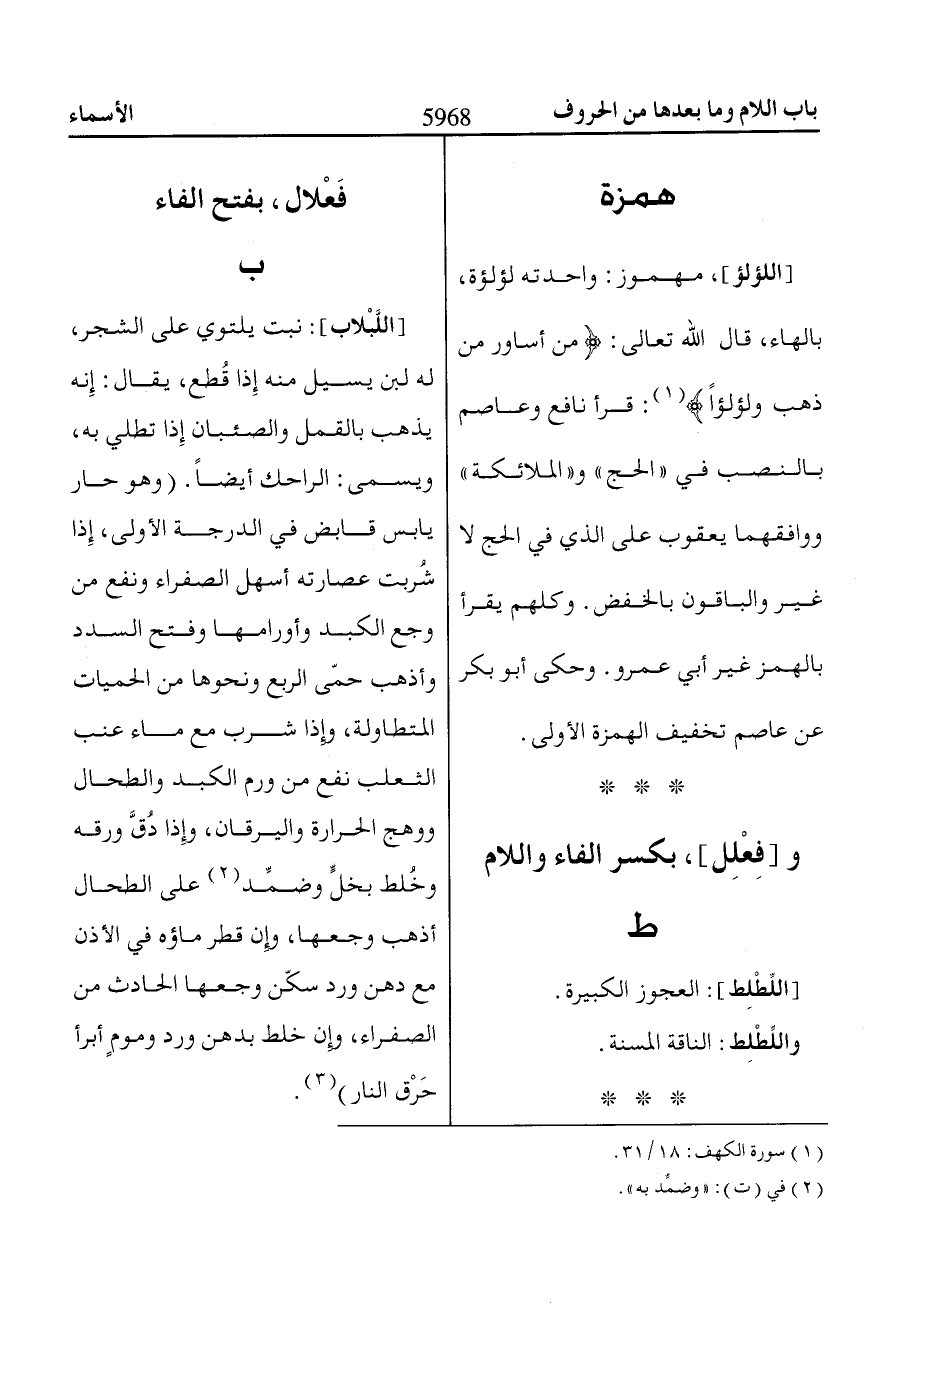 باب اللام وما بعدها من الحروف 5968 الأسماء
همزة
[اللؤلؤ]، مهموز: واحدته لؤلؤة،
بالهاء، قال الله تعالى: ﴿من أساور من
ذهب ولؤلؤاً﴾(١): قرأ نافع وعاصم
بالنصب في «الحج» و«الملائكة»
ووافقهما يعقوب على الذي في الحج لا
غير والباقون بالخفض. وكلهم يقرأ
بالهمز غير أبي عمرو. وحكى أبو بكر
عن عاصم تخفيف الهمزة الأولى.
* * *
و [فِعْلِل]، بكسر الفاء واللام
ط
[اللِّطْلِط]: العجوز الكبيرة.
واللِّطْلِط: الناقة المسنة.
* * *
فَعْلال، بفتح الفاء
ب
[اللَّبْلاب]: نبت يلتوي على الشجر،
له لبن يسيل منه إذا قُطع، يقال: إنه
يذهب بالقمل والصئبان إذا تطلي به،
ويسمى: الراحك أيضاً. (وهو حار
يابس قابض في الدرجة الأولى، إذا
شُربت عصارته أسهل الصفراء ونفع من
وجع الكبد وأورامها وفتح السدد
وأذهب حمّى الربع ونحوها من الحميات
المتطاولة، وإذا شرب مع ماء عنب
الثعلب نفع من ورم الكبد والطحال
ووهج الحرارة واليرقان، وإذا دُقَّ ورقه
وخُلط بخلٍّ وضمِّد(٢) على الطحال
أذهب وجعها، وإن قطر ماؤه في الأذن
مع دهن ورد سكّن وجعها الحادث من
الصفراء، وإن خلط بدهن ورد ومومٍ أبرأ
حَرْق النار)(٣).
(١) سورة الكهف: ١٨/ ٣١.
(٢) في (ت): «وضمِّد به».